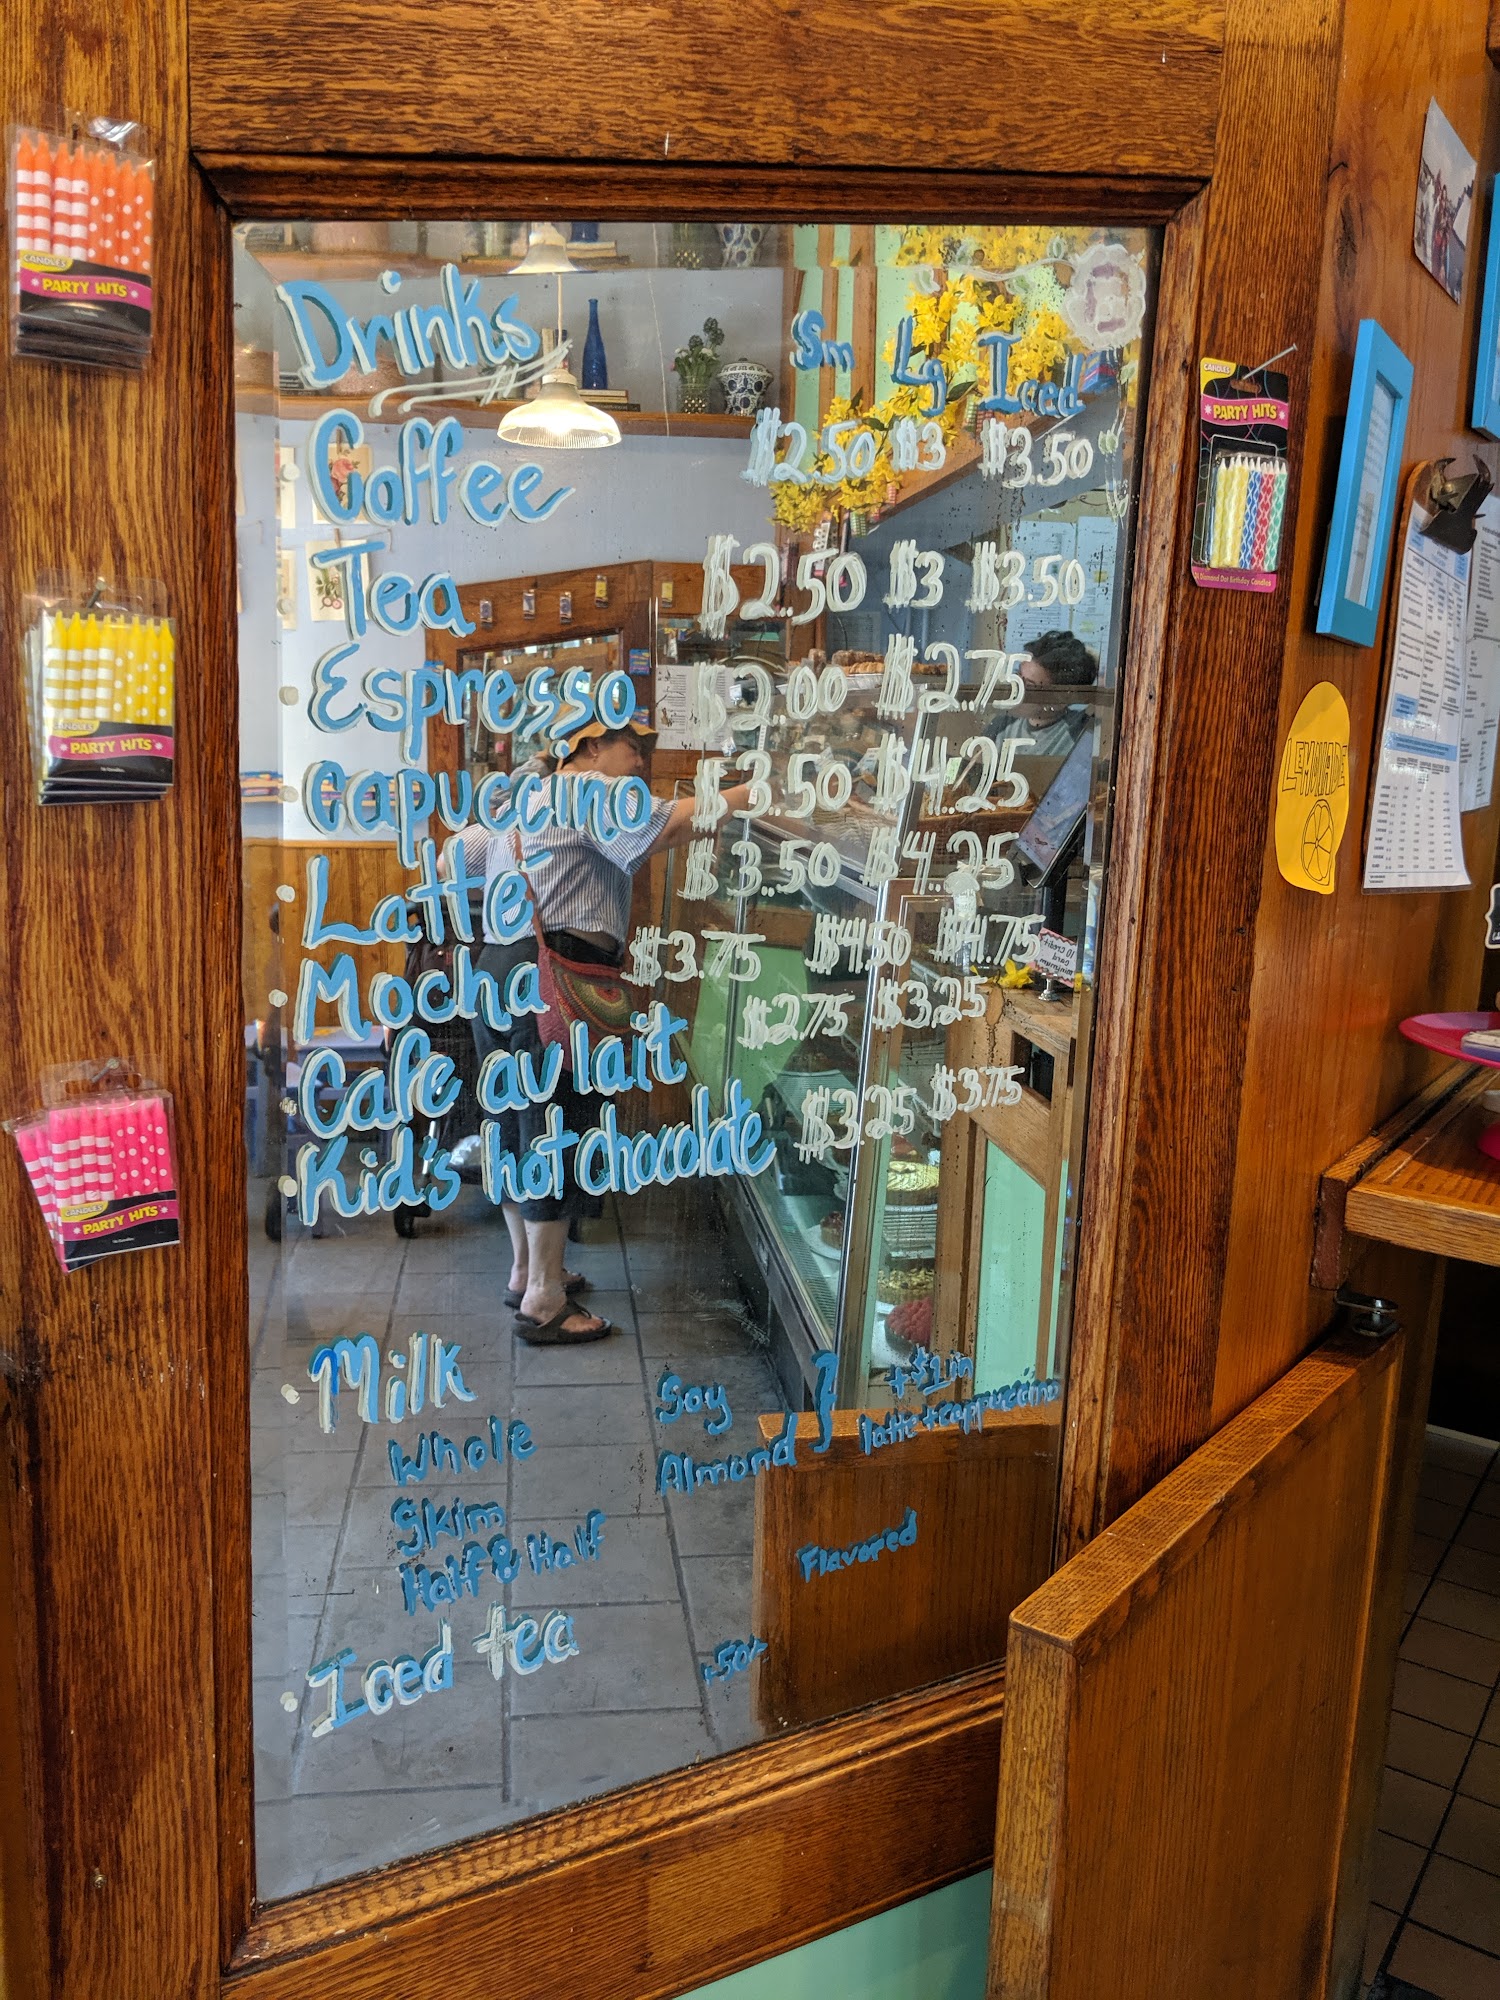 Drinks Sm Lg Iced
Coffee $2.50 $3 $3.50
Tea $2.50 $3 $3.50
Espresso $2.00 $2.75
Capuccino $3.50 $4.25
Latté $3.50 $4.25
Mocha $3.75 $4.50 $4.75
Cafe au lait $2.75 $3.25
Kid's hot chocolate $3.25 $3.75
Milk
Whole
Skim
Half & Half
Soy
Almond
+$1 in
latte + cappuccino
Flavored
Iced tea
CANDLES
PARTY HITS
CANDLES
PARTY HITS
CANDLES
PARTY HITS
CANDLES
PARTY HITS
Diamond Dot Birthday Candles
LEMONADE
10 Credit
card
minimum